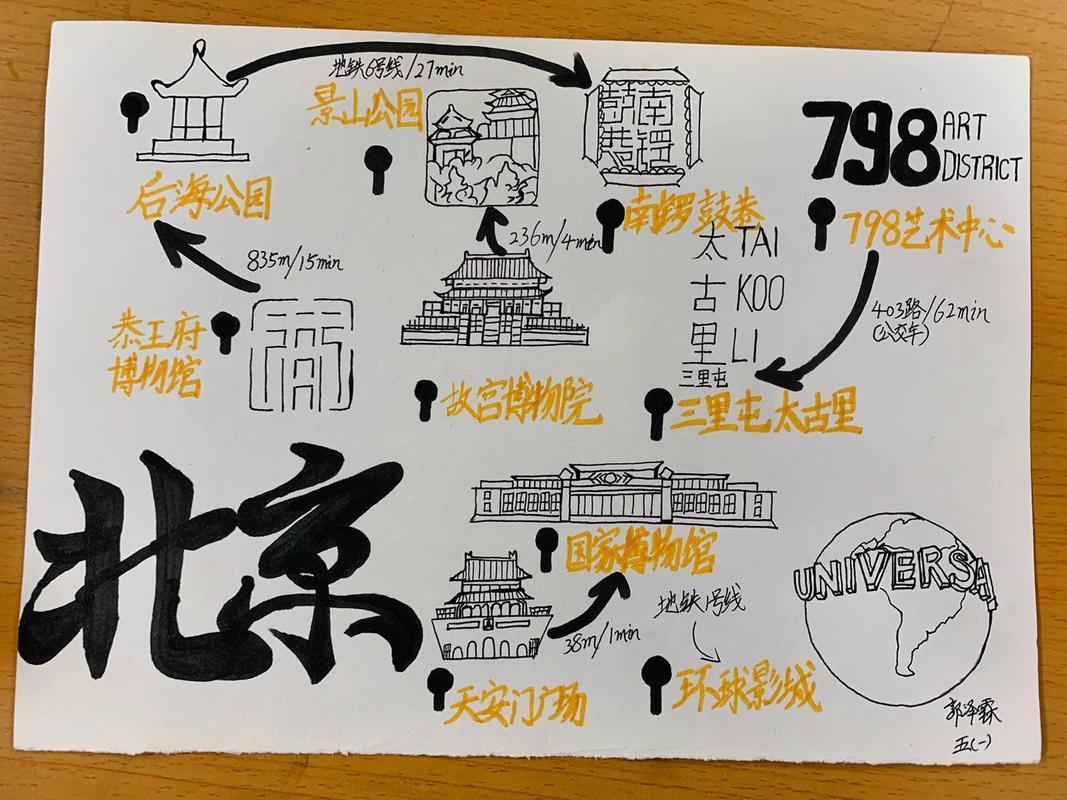 地铁6号线/27min
景山公园
南锣
鼓巷
798 ART
DISTRICT
后海公园
南锣鼓巷
798艺术中心
236m/4min
太 TAI
古 KOO
里 LI
三里屯
835m/15min
403路/62min
(公交车)
恭王府
博物馆
故宫博物院
三里屯太古里
北京
国家博物馆
UNIVERSAL
地铁1号线
38m/1min
天安门广场
环球影城
郭泽霖
五(一)